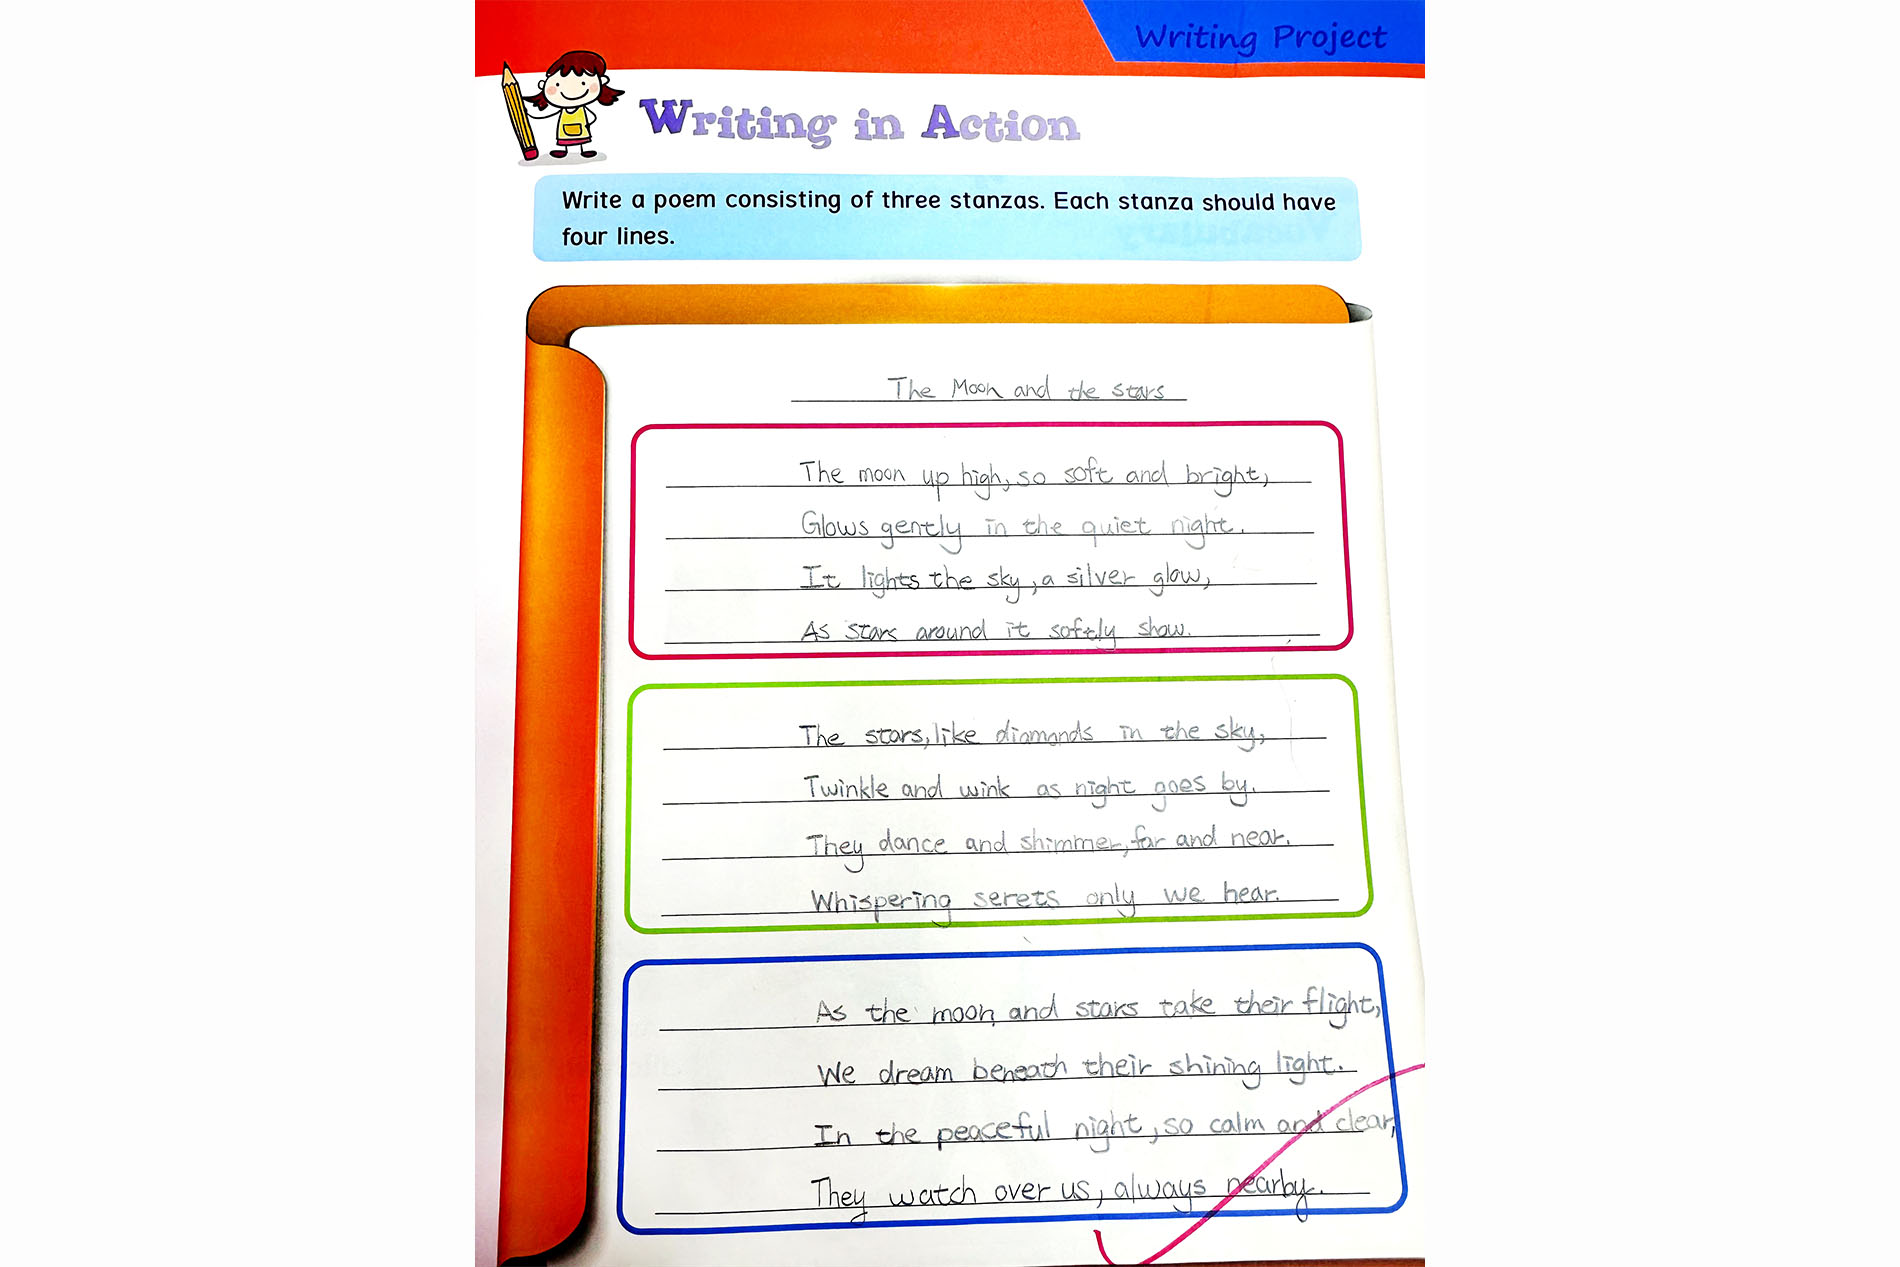 Writing Project
Writing in Action
Write a poem consisting of three stanzas. Each stanza should have
four lines.
The Moon and the stars
The moon up high, so soft and bright,
Glows gently in the quiet night.
It lights the sky, a silver glow,
As stars around it softly show.
The stars, like diamonds in the sky,
Twinkle and wink as night goes by.
They dance and shimmer, far and near.
Whispering serets only we hear.
As the moon and stars take their flight,
We dream beneath their shining light.
In the peaceful night, so calm and clear,
They watch over us, always nearby.